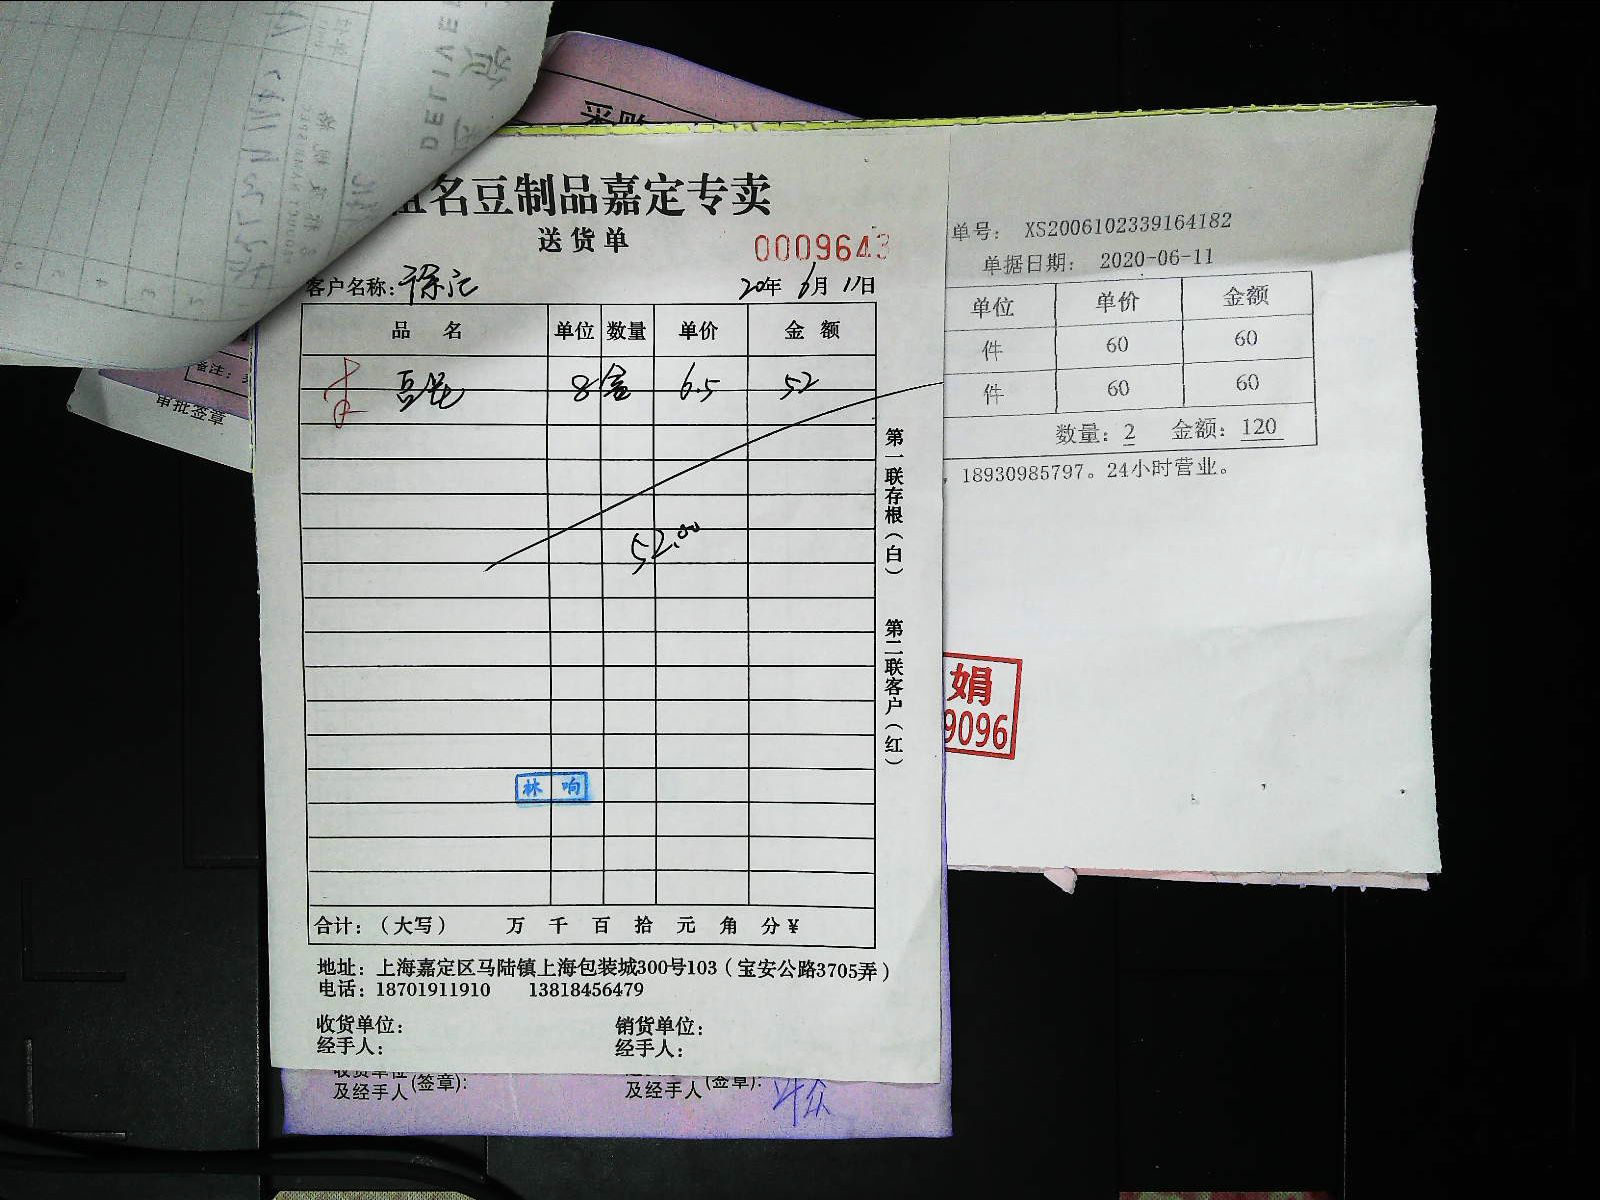 DELIVE
采购
名豆制品嘉定专卖
送货单
0009643
客户名称：徐汇
20年6月11日
品名 单位 数量 单价 金额
豆 8盒 6.5 52
52.00
第一联存根（白）
第二联客户（红）
林响
合计：（大写） 万 千 百 拾 元 角 分￥
地址：上海嘉定区马陆镇上海包装城300号103（宝安公路3705弄）
电话：18701911910 13818456479
收货单位：
经手人：
销货单位：
经手人：
收货单位
及经手人(签章)：
及经手人(签章)：
单号： XS2006102339164182
单据日期： 2020-06-11
单位 单价 金额
件 60 60
件 60 60
数量：2 金额：120
，18930985797。24小时营业。
娟
9096
备注：
审批签章